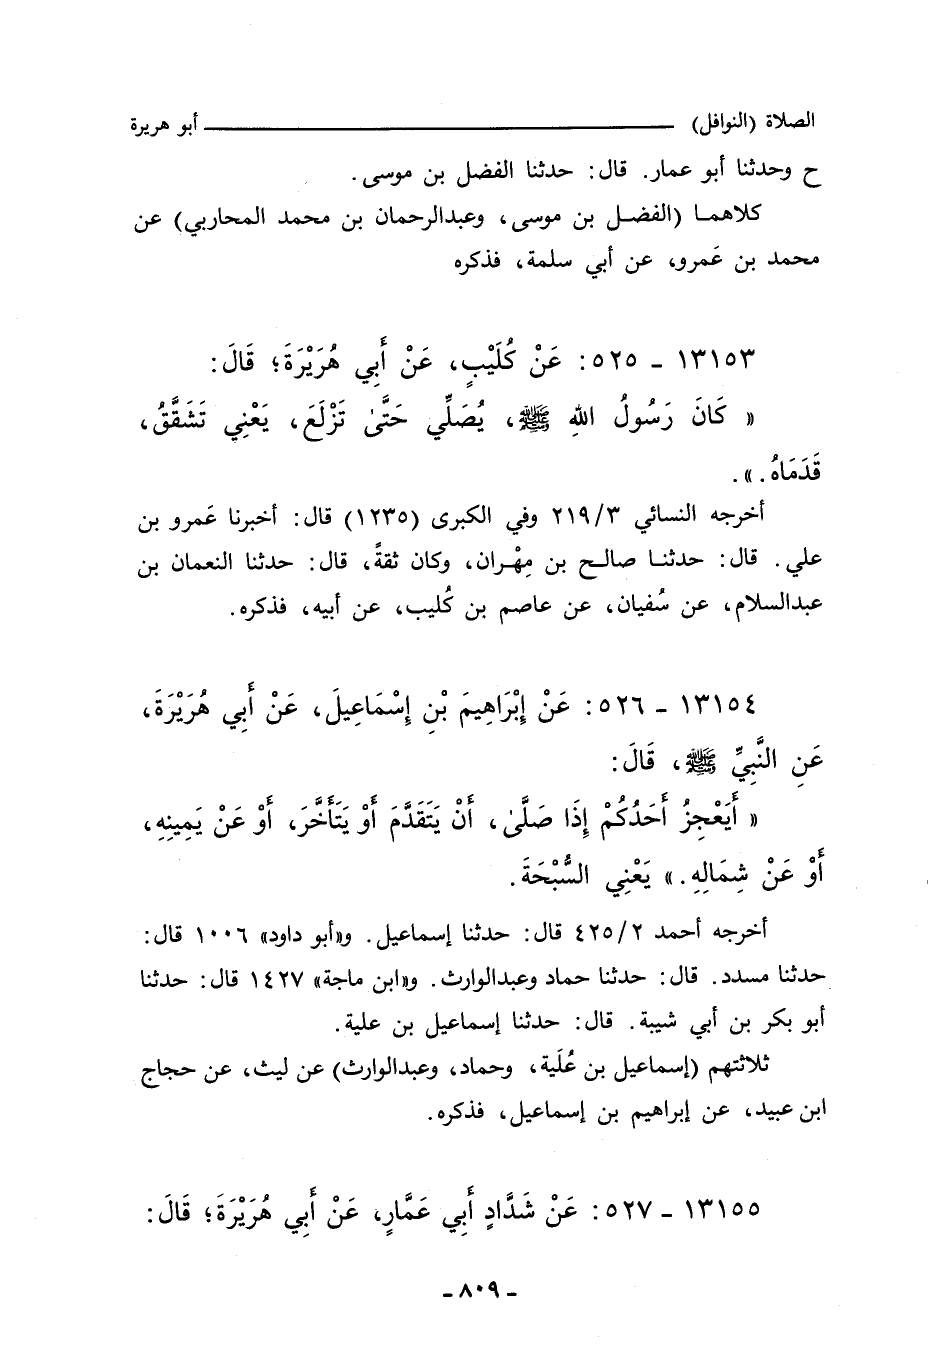 الصلاة (النوافل) ــــــــــــــــــــــــــــــــــــــــ أبو هريرة
ح وحدثنا أبو عمار. قال: حدثنا الفضل بن موسى.
كلاهما (الفضل بن موسى، وعبدالرحمان بن محمد المحاربي) عن
محمد بن عَمرو، عن أبي سلمة، فذكره
١٣١٥٣ - ٥٢٥: عَنْ كُلَيْبٍ، عَنْ أَبِي هُرَيْرَةَ؛ قَالَ:
« كَانَ رَسُولُ اللهِ ﷺ، يُصَلِّي حَتَّىٰ تَزْلَعَ، يَعْنِي تَشَقَّقُ،
قَدَمَاهُ.».
أخرجه النسائي ٢١٩/٣ وفي الكبرى (١٢٣٥) قال: أخبرنا عَمرو بن
علي. قال: حدثنا صالح بن مِهْران، وكان ثقةً، قال: حدثنا النعمان بن
عبدالسلام، عن سُفيان، عن عاصم بن كُليب، عن أبيه، فذكره.
١٣١٥٤ - ٥٢٦: عَنْ إِبْرَاهِيمَ بْنِ إِسْمَاعِيلَ، عَنْ أَبِي هُرَيْرَةَ،
عَنِ النَّبِيِّ ﷺ، قَالَ:
« أَيَعْجِزُ أَحَدُكُمْ إِذَا صَلَّىٰ، أَنْ يَتَقَدَّمَ أَوْ يَتَأَخَّرَ، أَوْ عَنْ يَمِينِهِ،
أَوْ عَنْ شِمَالِهِ.» يَعْنِي السُّبْحَةَ.
أخرجه أحمد ٤٢٥/٢ قال: حدثنا إسماعيل. و«أبو داود» ١٠٠٦ قال:
حدثنا مسدد. قال: حدثنا حماد وعبدالوارث. و«ابن ماجة» ١٤٢٧ قال: حدثنا
أبو بكر بن أبي شيبة. قال: حدثنا إسماعيل بن علية.
ثلاثتهم (إسماعيل بن عُلَية، وحماد، وعبدالوارث) عن ليث، عن حجاج
ابن عبيد، عن إبراهيم بن إسماعيل، فذكره.
١٣١٥٥ - ٥٢٧: عَنْ شَدَّادٍ أَبِي عَمَّارٍ، عَنْ أَبِي هُرَيْرَةَ؛ قَالَ:
- ٨٠٩ -